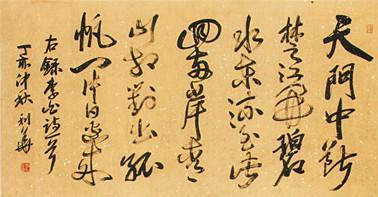 天門中斷
楚江開碧
水東流至此
回兩岸青
山相對出孤
帆一片日邊來
右錄李白詩首
丁亥仲秋